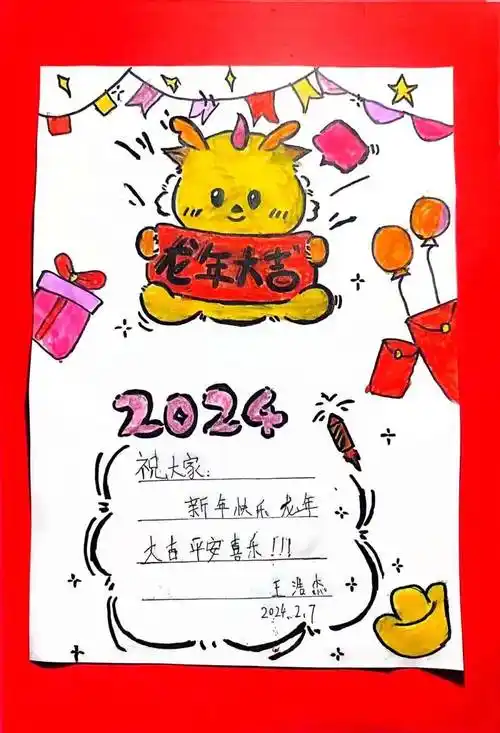 龙年大吉
2024
祝大家：
新年快乐 龙年
大吉平安喜乐!!!
王浩杰
2024.2.7